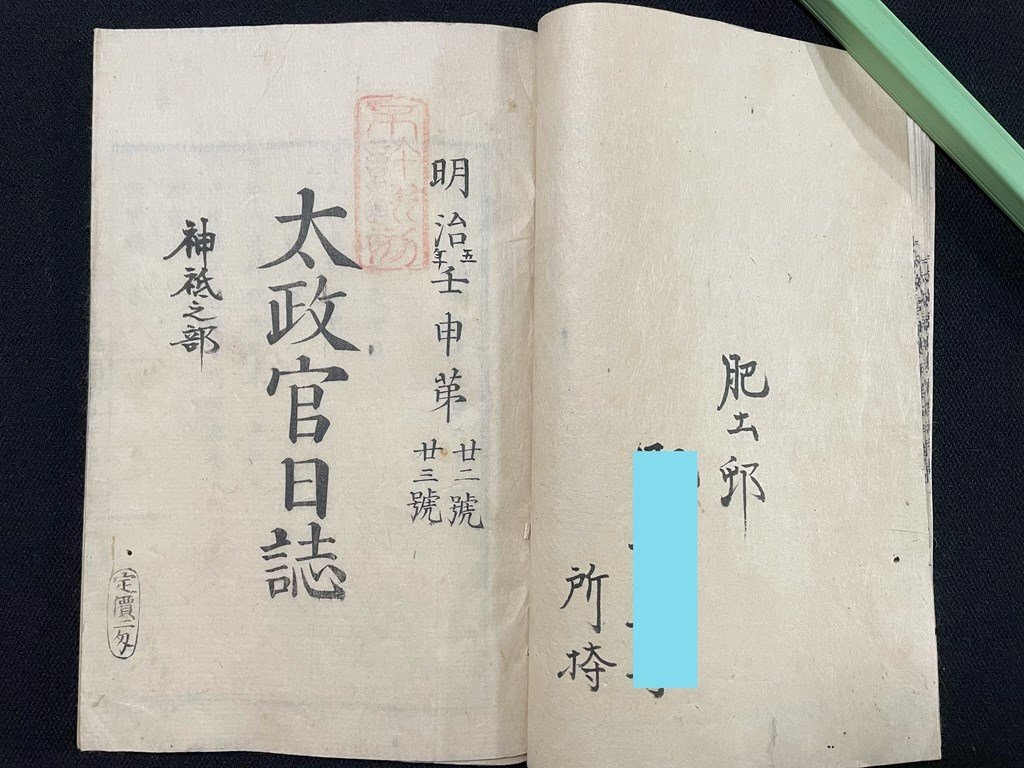 肥土邨
所持
明治五年壬申第
廿二號
廿三號
太政官日誌
神祇之部
定價二匁